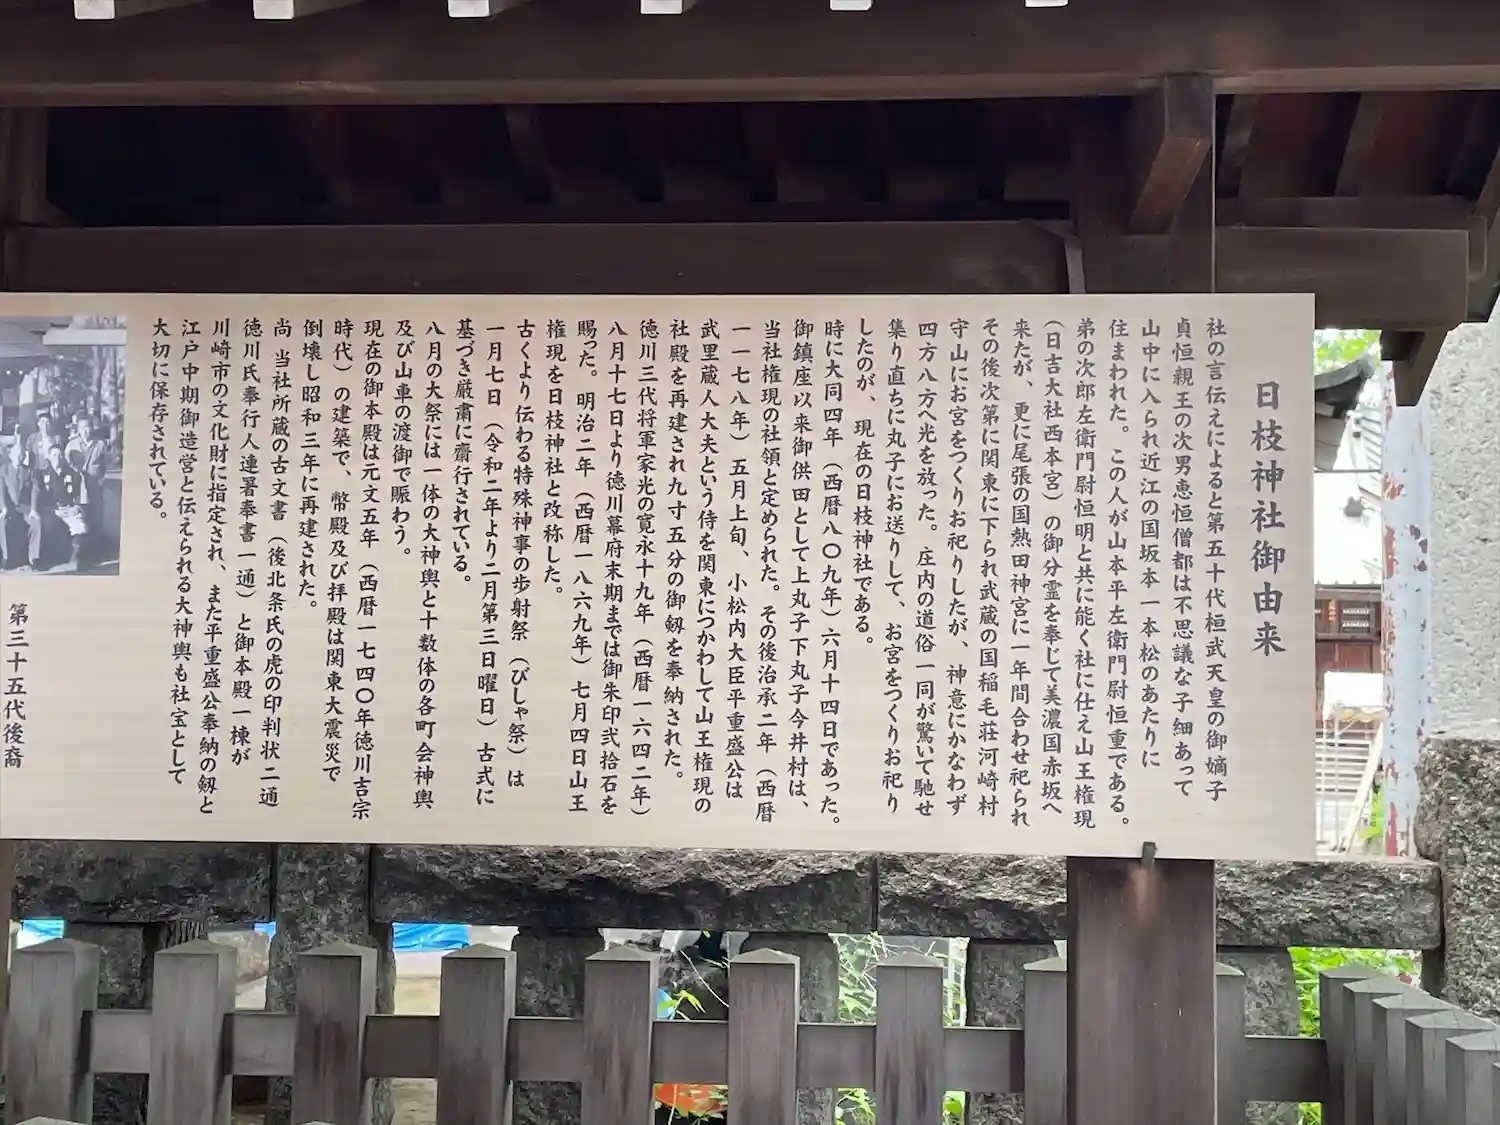 日枝神社御由来
社の言伝えによると第五十代桓武天皇の御嫡子
貞恒親王の次男恵恒僧都は不思議な子細あって
山中に入られ近江の国坂本一本松のあたりに
住まわれた。この人が山本平左衛門尉恒重である。
弟の次郎左衛門尉恒明と共に能く社に仕え山王権現
(日吉大社西本宮)の御分霊を奉じて美濃国赤坂へ
来たが、更に尾張の国熱田神宮に一年間合わせ祀られ
その後次第に関東に下られ武蔵の国稲毛荘河崎村
守山にお宮をつくりお祀りしたが、神意にかなわず
四方八方へ光を放った。庄内の道俗一同が驚いて馳せ
集り直ちに丸子にお送りして、お宮をつくりお祀り
したのが、現在の日枝神社である。
時に大同四年(西暦八〇九年)六月十四日であった。
御鎮座以来御供田として上丸子下丸子今井村は、
当社権現の社領と定められた。その後治承二年(西暦
一一七八年)五月上旬、小松内大臣平重盛公は
武里蔵人大夫という侍を関東につかわして山王権現の
社殿を再建され九寸五分の御劔を奉納された。
徳川三代将軍家光の寛永十九年(西暦一六四二年)
八月十七日より徳川幕府末期までは御朱印弐拾石を
賜った。明治二年(西暦一八六九年)七月四日山王
権現を日枝神社と改称した。
古くより伝わる特殊神事の歩射祭(びしゃ祭)は
一月七日(令和二年より二月第三日曜日)古式に
基づき厳粛に齋行されている。
八月の大祭には一体の大神輿と十数体の各町会神輿
及び山車の渡御で賑わう。
現在の御本殿は元文五年(西暦一七四〇年徳川吉宗
時代)の建築で、幣殿及び拝殿は関東大震災で
倒壊し昭和三年に再建された。
尚 当社所蔵の古文書(後北条氏の虎の印判状二通
徳川氏奉行人連署奉書一通)と御本殿一棟が
川崎市の文化財に指定され、また平重盛公奉納の劔と
江戸中期御造営と伝えられる大神輿も社宝として
大切に保存されている。
第三十五代後裔